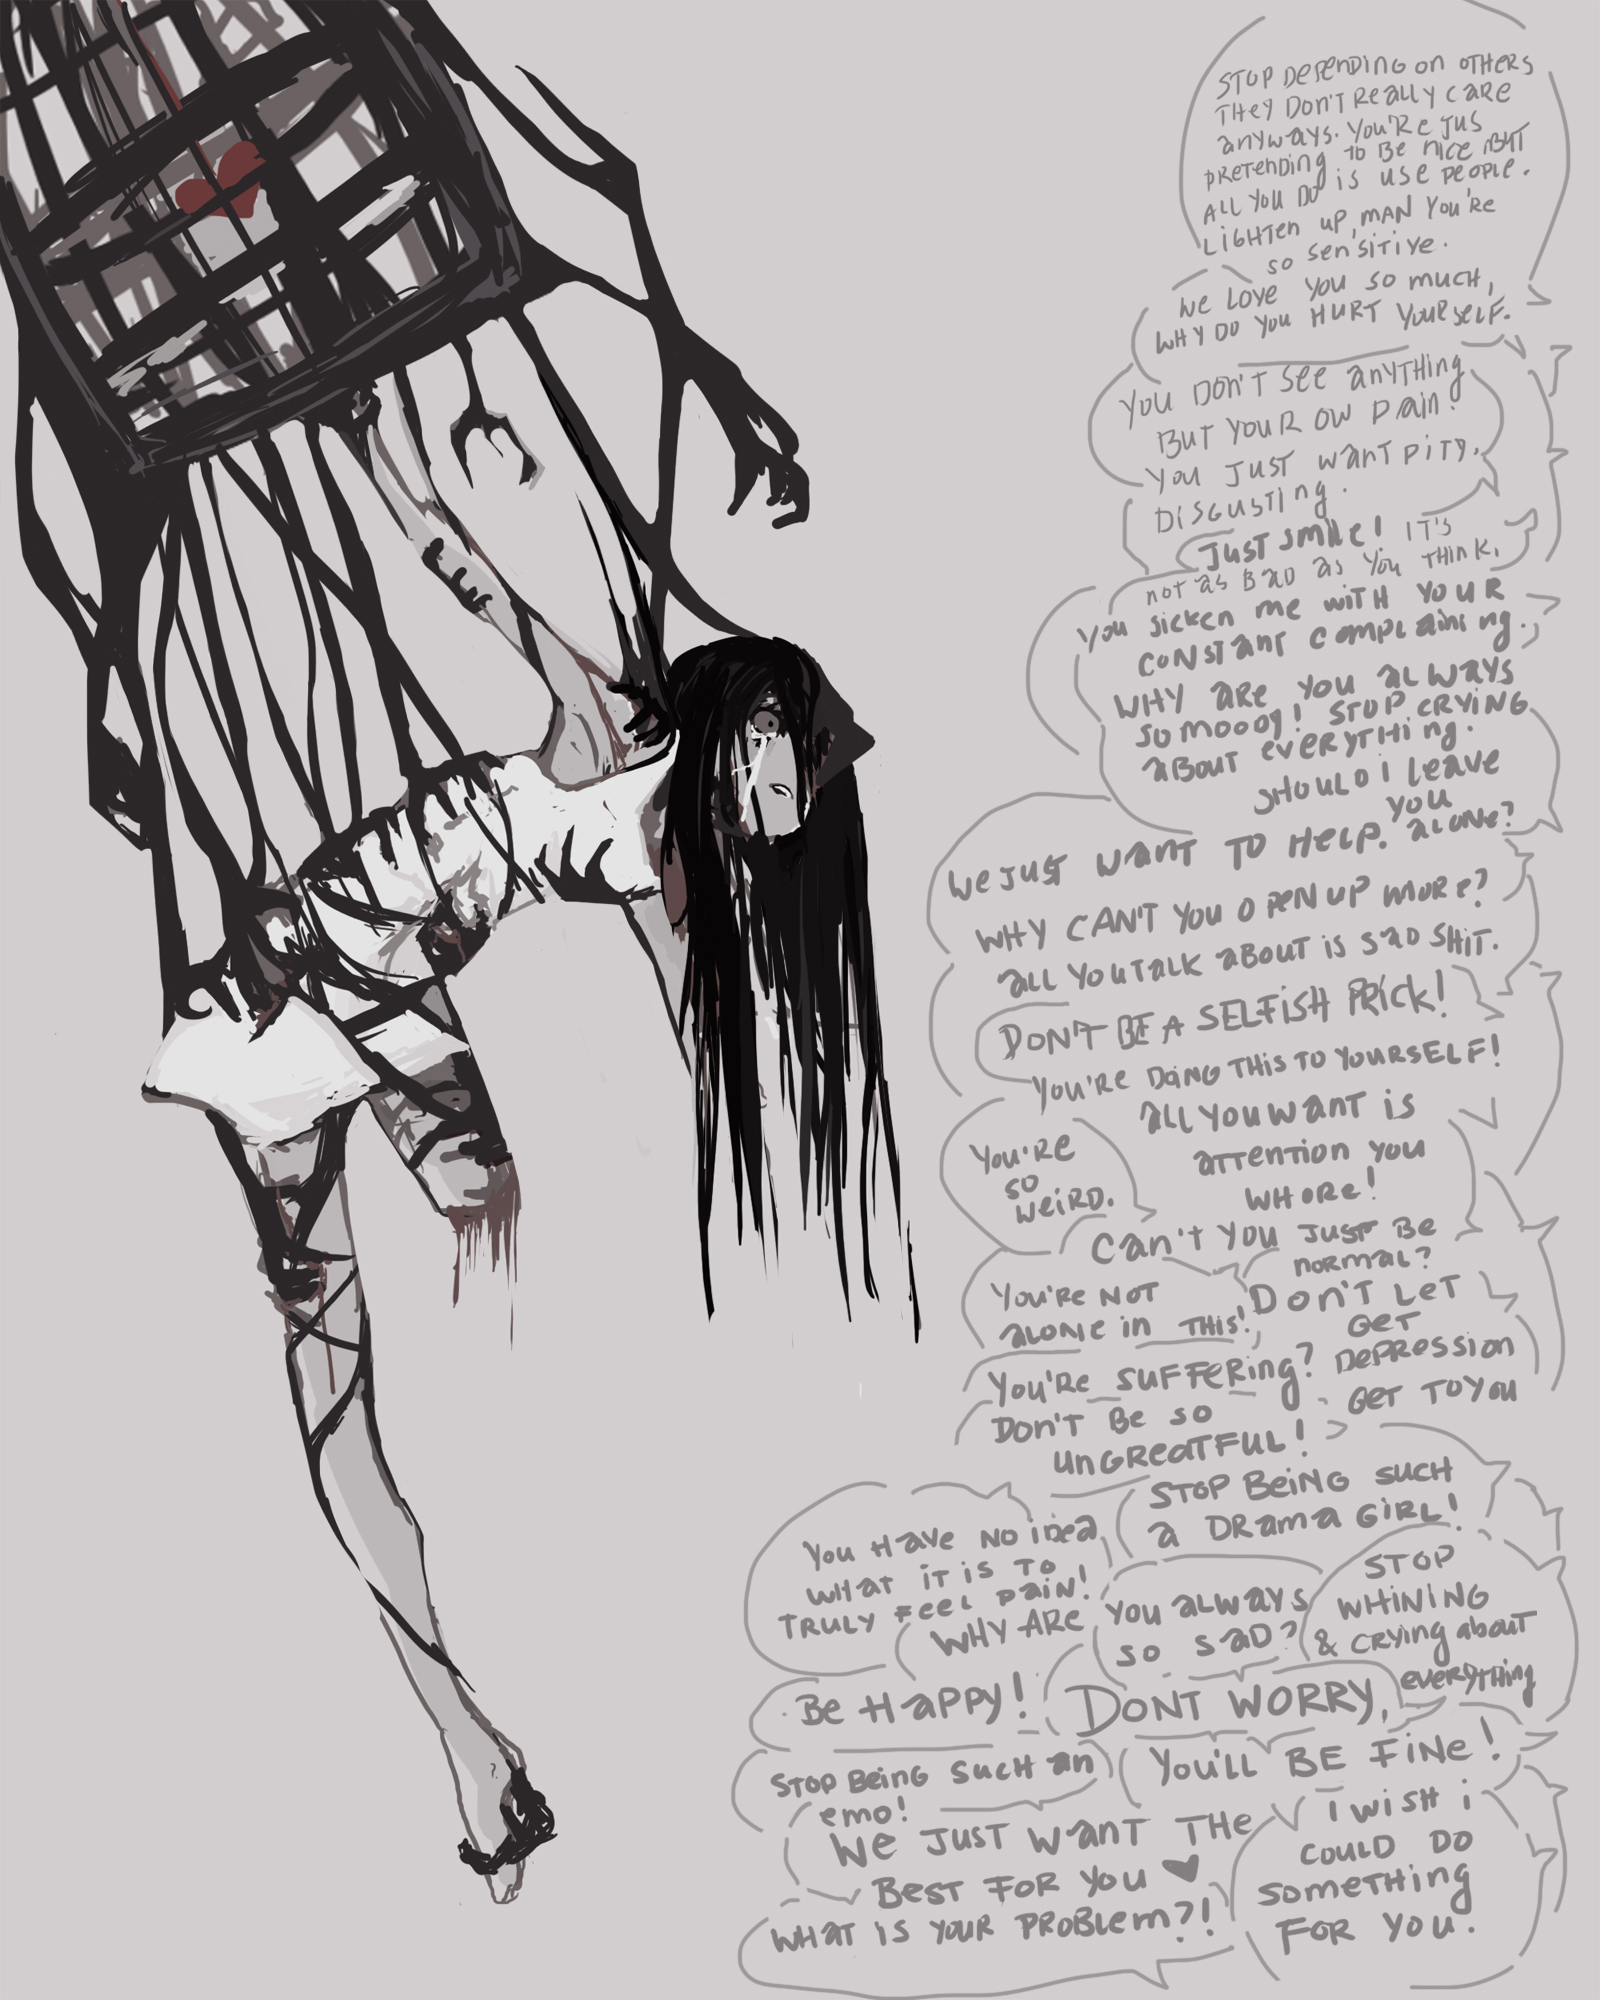 STOP DEPENDING ON OTHERS
THEY DON'T REALLY CARE
ANYWAYS. YOU'RE JUS
PRETENDING TO BE NICE BUT
ALL YOU DO IS USE PEOPLE.
LIGHTEN UP, MAN YOU'RE
SO SENSITIVE.
WE LOVE YOU SO MUCH,
WHY DO YOU HURT YOURSELF.
YOU DON'T SEE ANYTHING
BUT YOUR OW PAIN.
YOU JUST WANT PITY.
DISGUSTING.
JUST SMILE! IT'S
NOT AS BAD AS YOU THINK.
YOU SICKEN ME WITH YOUR
CONSTANT COMPLAINING.
WHY ARE YOU ALWAYS
SO MOOOY! STOP CRYING
ABOUT EVERYTHING.
SHOULD I LEAVE
YOU
ALONE?
WE JUST WANT TO HELP.
WHY CAN'T YOU OPEN UP MORE?
ALL YOU TALK ABOUT IS SAD SHIT.
DON'T BE A SELFISH PRICK!
YOU'RE DOING THIS TO YOURSELF!
ALL YOU WANT IS
ATTENTION YOU
WHORE!
YOU'RE
SO
WEIRD.
CAN'T YOU JUST BE
NORMAL?
YOU'RE NOT
ALONE IN THIS!
DON'T LET
GET
DEPRESSION
GET TO YOU
YOU'RE SUFFERING?
DON'T BE SO
UNGREATFUL!
STOP BEING SUCH
A DRAMA GIRL!
YOU HAVE NO IDEA
WHAT IT IS TO
TRULY FEEL PAIN!
WHY ARE YOU ALWAYS
SO SAD?
STOP
WHINING
& CRYING ABOUT
EVERYTHING
BE HAPPY!
DONT WORRY,
YOU'LL BE FINE!
STOP BEING SUCH AN
EMO!
WE JUST WANT THE
BEST FOR YOU ♥
I WISH I
COULD DO
SOMETHING
FOR YOU.
WHAT IS YOUR PROBLEM?!